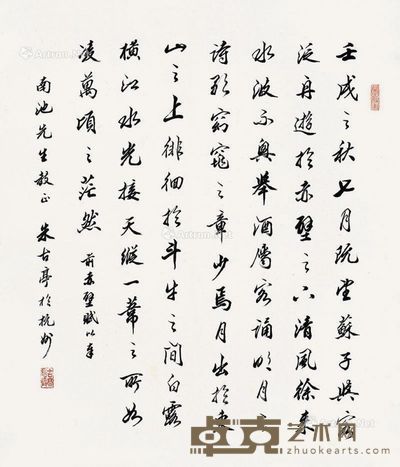 壬戌之秋七月既望蘇子與客
泛舟遊於赤壁之下清風徐來
水波不興舉酒屬客誦明月之
詩歌窈窕之章少焉月出於東
山之上徘徊於斗牛之間白露
橫江水光接天縱一葦之所如
凌萬頃之茫然 前赤壁賦以奉
南池先生教正 朱古亭於杭州
卓克艺术网
http://www.zhuokearts.com